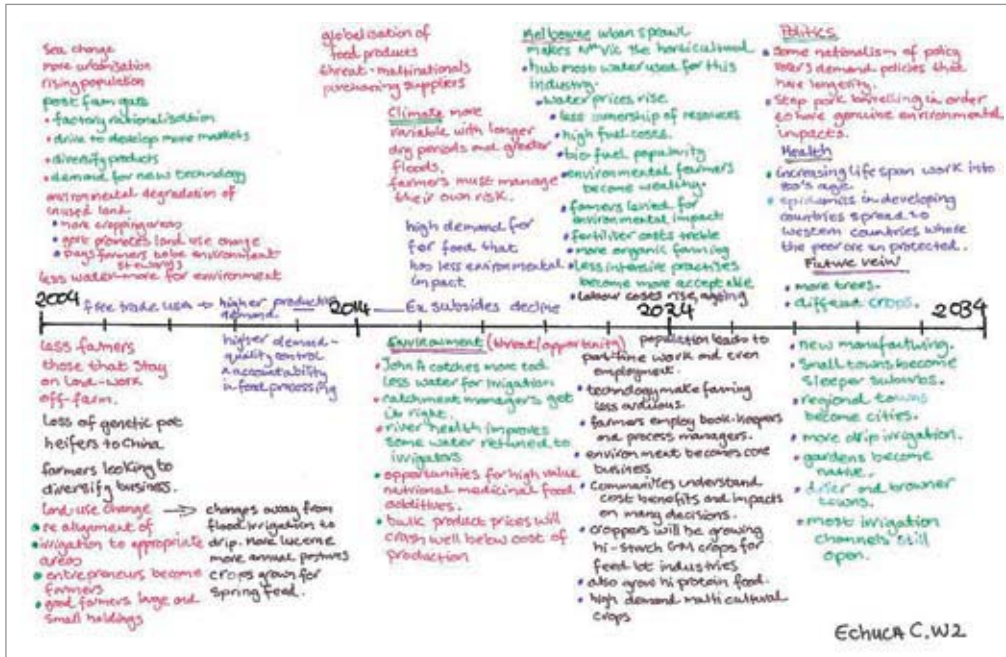 Sea change
more urbanisation
rising population
post farm gate
• factory rationalisation
• drive to develop more markets
• diversify products
• demand for new technology
environmental degradation of
unused land
• more cropping areas
• govt promotes land use change
• pays farmers to be environment
stewards
less water-more for environment
globalisation of
food products
threat-multinationals
purchasing suppliers
Climate more
variable with longer
dry periods and greater
floods.
farmers must manage
their own risk.
high demand for
for food that
has less environmental
impact.
Melbourne urban sprawl
makes Nth Vic the horticultural
• hub most water used for this
industry.
• water prices rise
• less ownership of resources
• high fuel costs.
• bio fuel popularity
• environmental farmers
become wealthy.
• farmers levied for
environmental impact
• fertiliser costs treble
• more organic farming
• Less intensive practises
become more acceptable
• labour costs rise, ageing
Politics
• Some nationalism of policy
voters demand policies that
have longevity.
• Stop pork barrelling in order
to have genuine environmental
impacts.
Health
• increasing life span work into
80's age.
• epidemics in developing
countries spread to
western countries where
the poor are unprotected.
Future vein
• more trees.
• different crops.
2004 free trade USA → higher production
demand.
2014 — Ex subsides decline
2024
2034
less farmers
those that stay
on land-work
off-farm.
Loss of genetic pot
heifers to China
farmers looking to
diversify business.
land use change → changes away from
flood irrigation to
drip. More lucerne
more annual pastures
crops grown for
spring feed.
• re alignment of
• irrigation to appropriate
areas
• entrepreneurs become
farmers
• good farmers large and
small holdings
higher demand-
quality control
& accountability
in food processing
Environment (threat/opportunity)
• John A catches more cod
less water for irrigation
• catchment managers get
it right.
• river health improves
some water returned to
irrigators
• opportunities for high value
nutrional medicinal food
additives.
• bulk product prices will
crash well below cost of
production
population leads to
part-time work and even
employment.
• technology make farming
less arduous.
• farmers employ book-keepers
and process managers.
• environment becomes core
business
• Communities understand
cost benefits and impacts
on many decisions.
• croppers will be growing
hi-starch GM crops for
feed lot industries
• also grow hi protein food.
• high demand multi cultural
crops
• new manufacturing.
• Small towns become
sleeper suburbs.
• regional towns
become cities.
• more drip irrigation.
• gardens become
native.
• drier and browner
towns.
• most irrigation
channels still
open.
Echuca C.W2